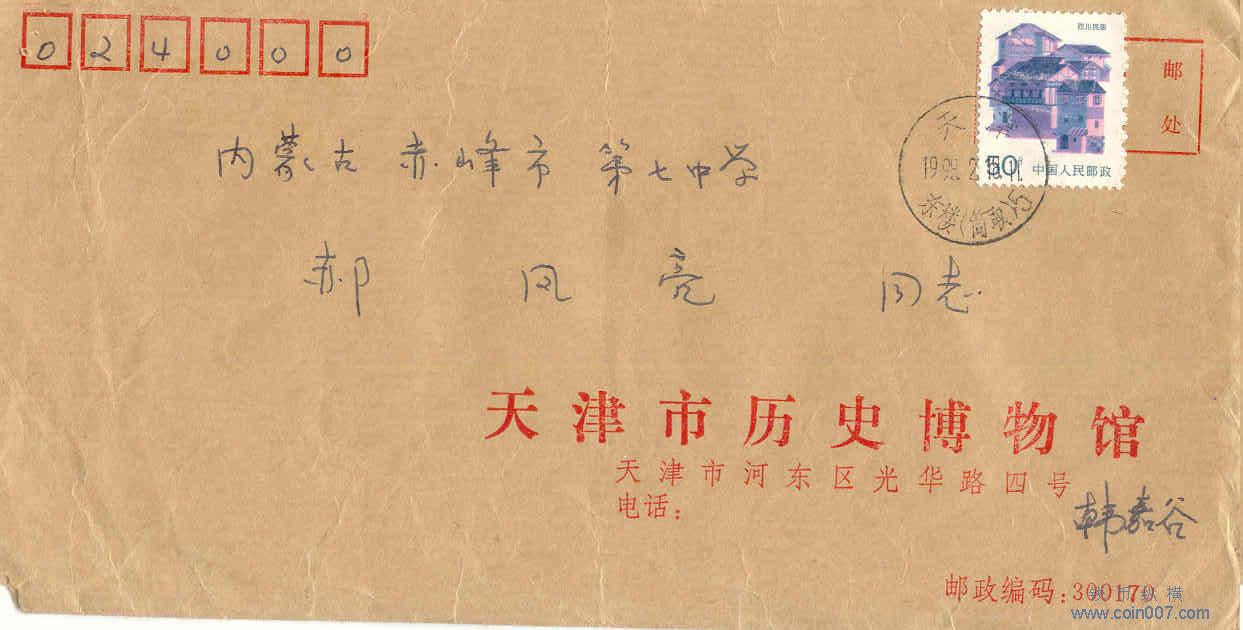 024000
四川民居
50分 中国人民邮政
邮
处
天津
1998.2.
茶楼(简取)5
内蒙古赤峰市第七中学
郝凤亮 同志
天津市历史博物馆
天津市河东区光华路四号
电话：
韩嘉谷
邮政编码：300170
钱币纵横
www.coin007.com